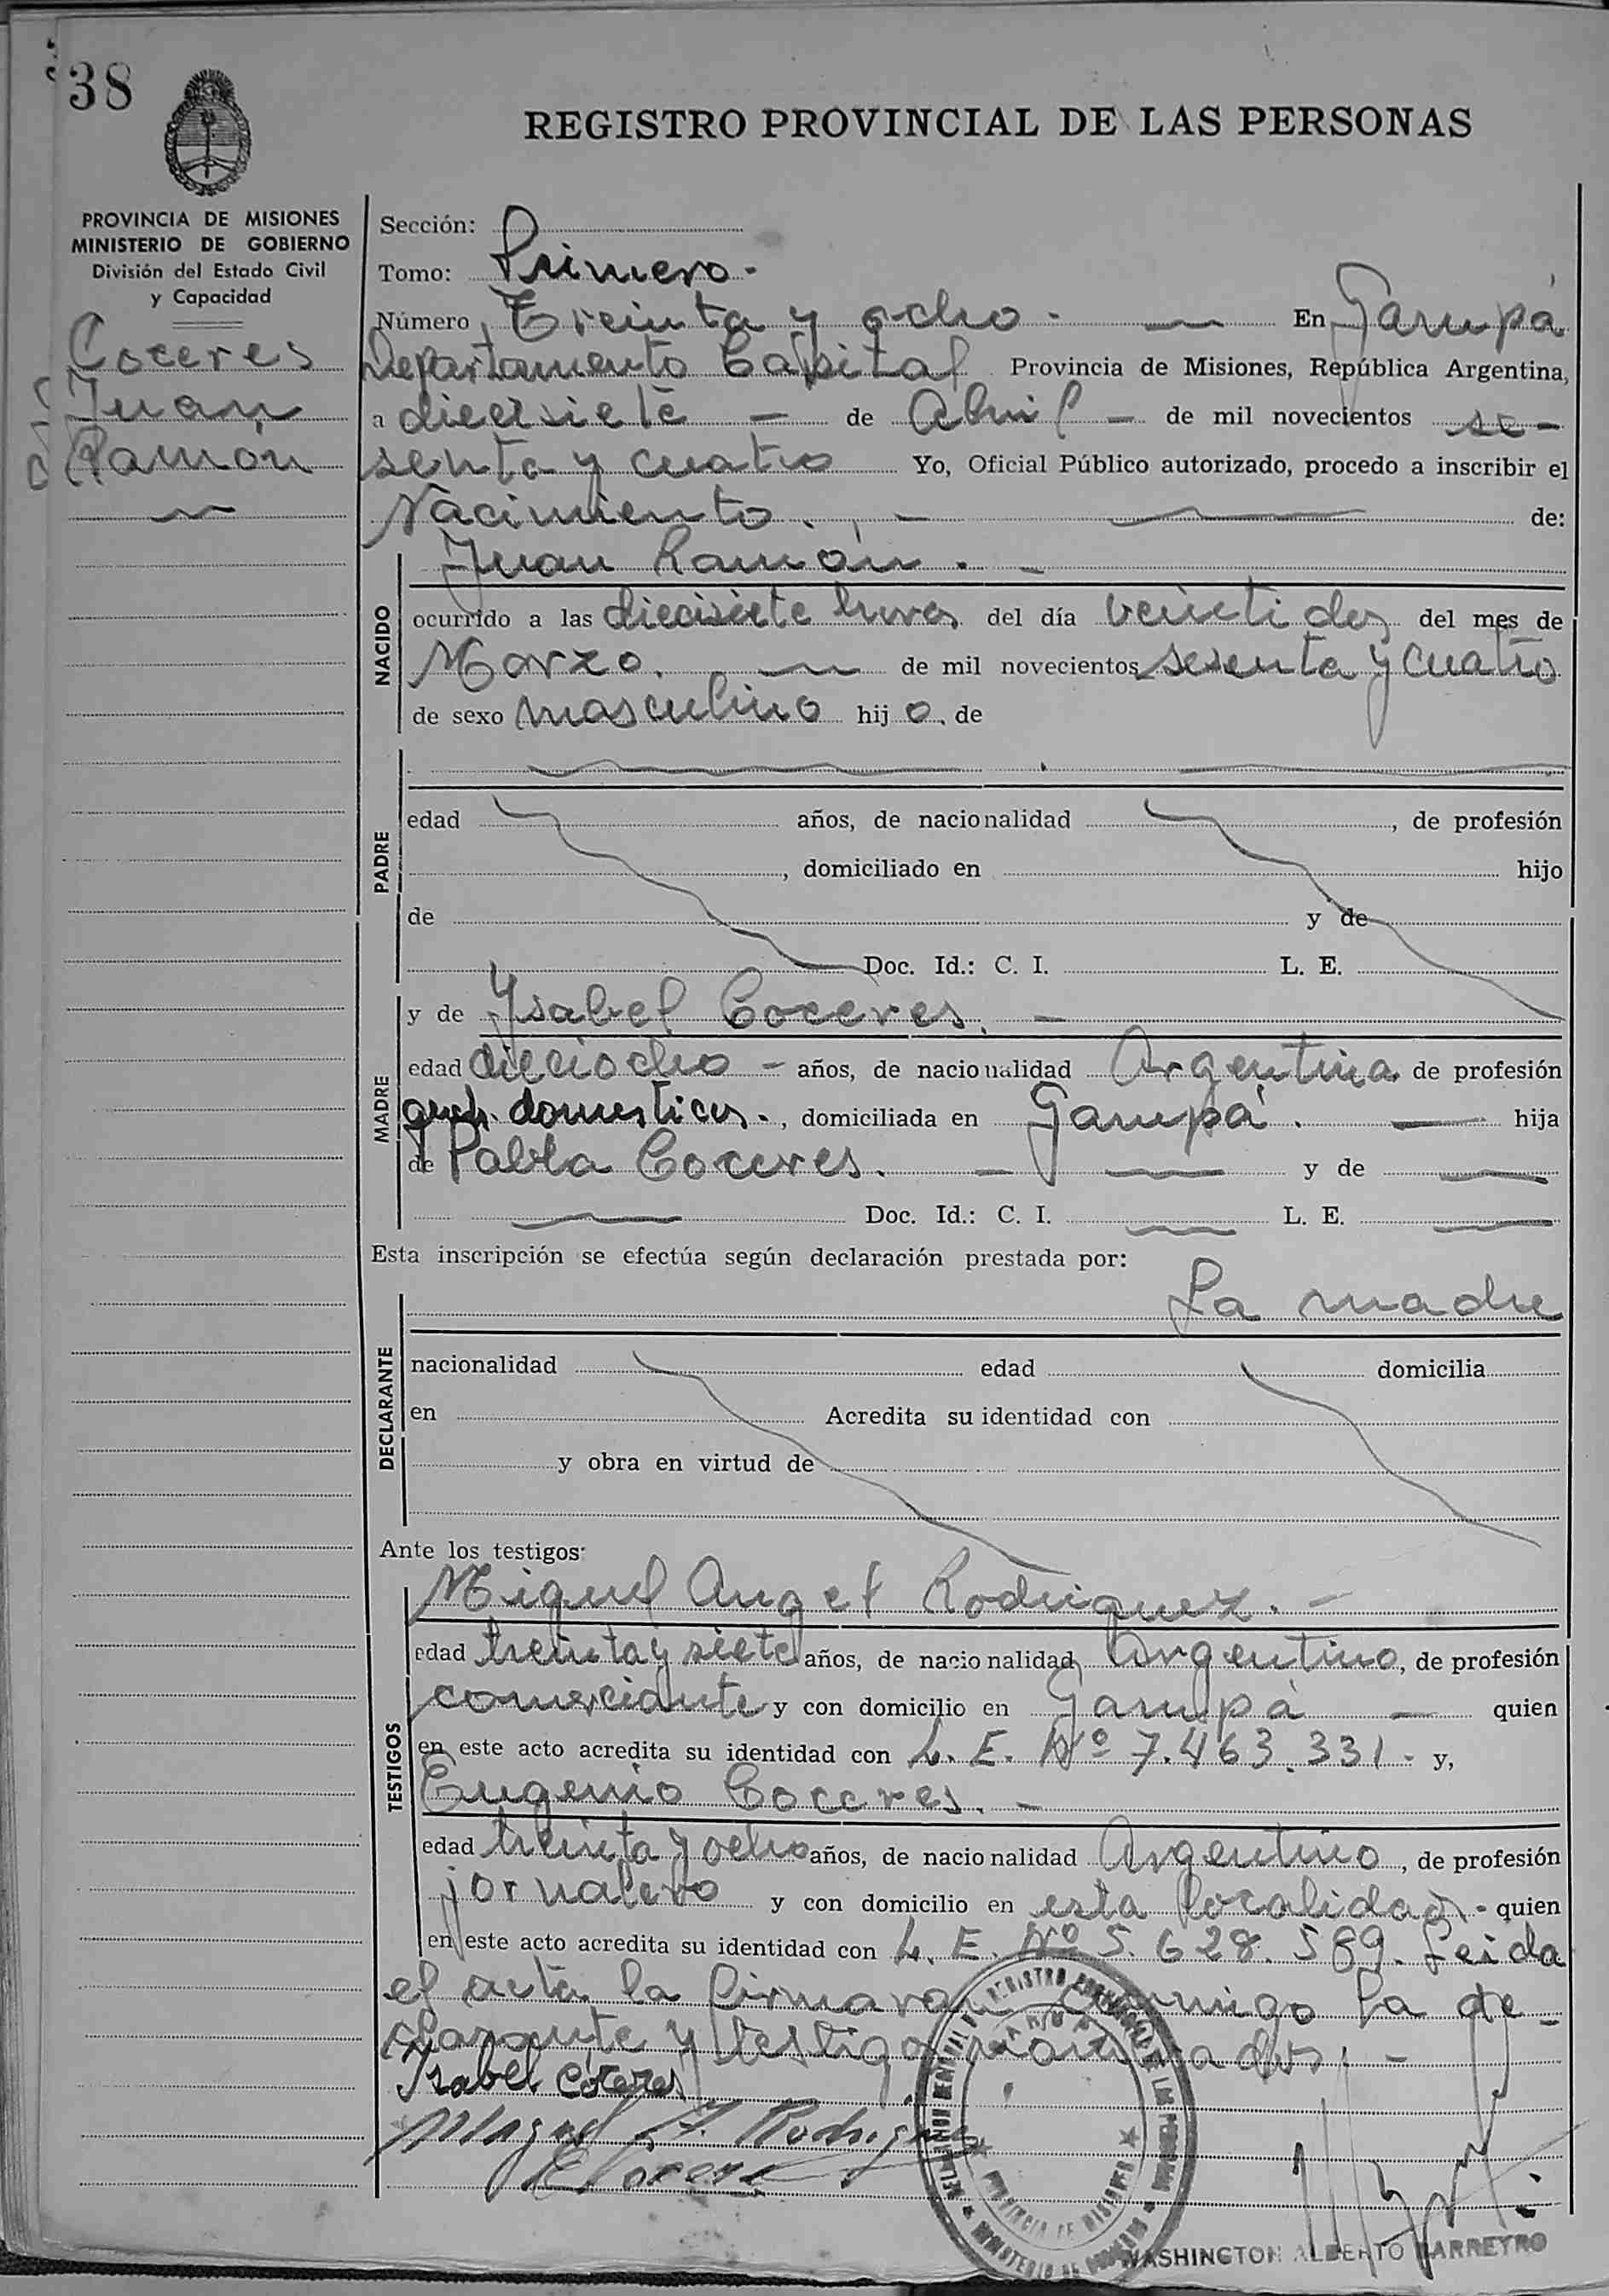 38
REGISTRO PROVINCIAL DE LAS PERSONAS
PROVINCIA DE MISIONES
MINISTERIO DE GOBIERNO
División del Estado Civil
y Capacidad
Coceres
Juan
Ramón
Sección:
Tomo: Primero.-
Número Treinta y ocho - En Garupá
Departamento Capital Provincia de Misiones, República Argentina,
a diecisiete - de Abril - de mil novecientos se-
senta y cuatro Yo, Oficial Público autorizado, procedo a inscribir el
Nacimiento. - de:
Juan Ramón. -
NACIDO
ocurrido a las diecisiete horas del día veintidos del mes de
Marzo. de mil novecientos sesenta y cuatro
de sexo masculino hij o. de
PADRE
edad años, de nacionalidad , de profesión
, domiciliado en hijo
de y de
Doc. Id.: C. I. L. E.
MADRE
y de Ysabel Coceres. -
edad dieciocho - años, de nacionalidad Argentina. de profesión
domesticos. , domiciliada en Garupá. - hija
de Pabla Coceres. - y de
Doc. Id.: C. I. L. E.
Esta inscripción se efectúa según declaración prestada por:
La madre
DECLARANTE
nacionalidad edad domicilia
en Acredita su identidad con
y obra en virtud de
Ante los testigos:
Miguel Angel Rodriguez. -
TESTIGOS
edad treinta y siete años, de nacionalidad Argentino, de profesión
comerciante y con domicilio en Garupá - quien
en este acto acredita su identidad con L. E. Nº 7.463.331- y,
Eugenio Coceres. -
edad treinta y ocho años, de nacionalidad Argentino, de profesión
jornalero y con domicilio en esta localidad.- quien
en este acto acredita su identidad con L. E. Nº 5.628.589. Leida
el acta la firmaran conmigo la de-
clarante y testigos nombrados. -
Isabel Coceres
Miguel A. Rodriguez
E Coceres
MINISTERIO DE GOBIERNO
PROVINCIA DE MISIONES
WASHINGTON ALBERTO BARREYRO